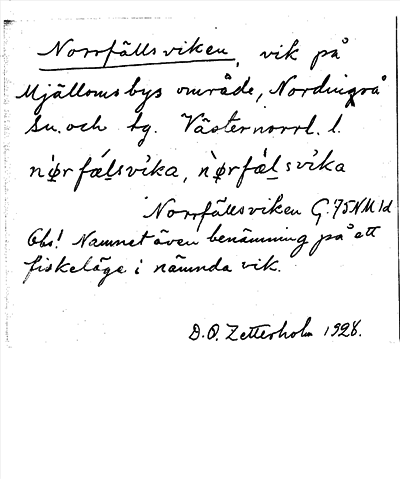 Norrfällsviken, vik på
Mjällomsbys område, Nordingrå
sn. och tg. Västernorrl. l.
nø̀rfálsvìka, nø̀rfál svìka
Norrfällsviken G. 75 NM 1d
Obs! Namnet även benämning på ett
fiskeläge i nämnda vik.
D. O. Zetterholm 1928.